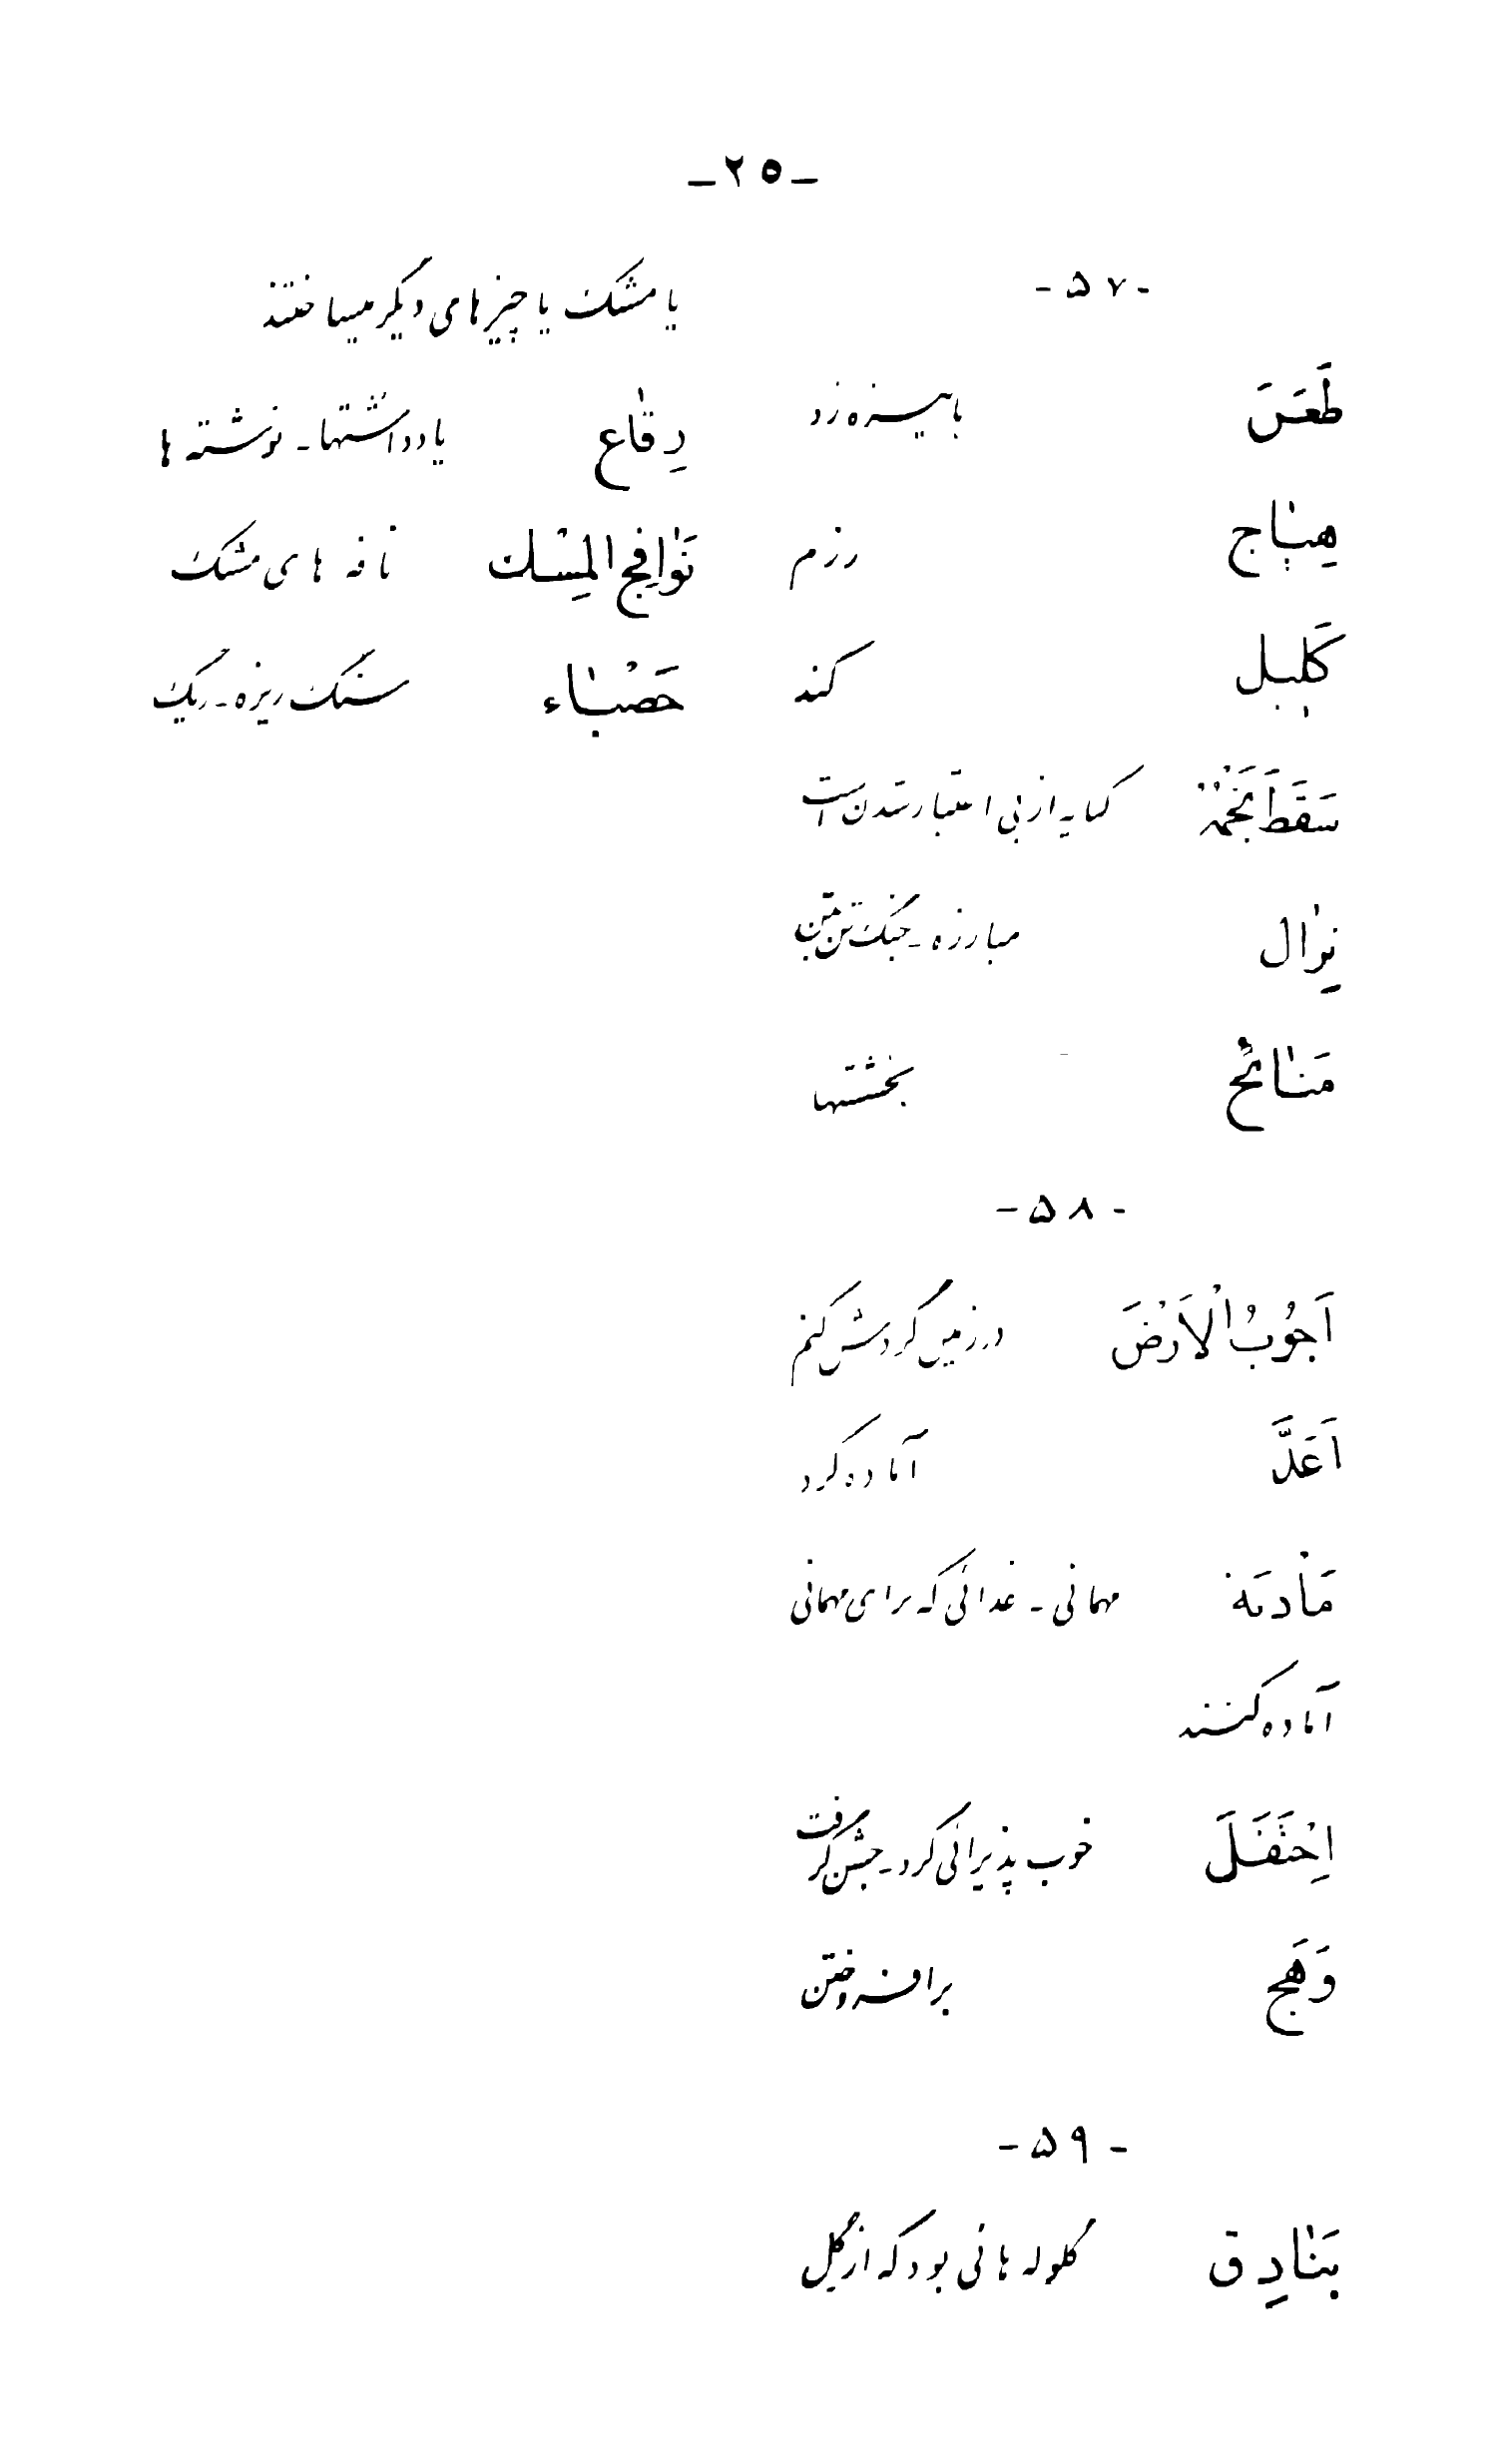 -۲۵-
-۵۷-
طَعَنَ با نیزه زد
هِیاج رزم
کَلیل کند
سَقَطَ نَجْمُهُ کنایه از بی اعتبار شدن است
نِزال مبارزه - جنگ تن بتن
مَنائح بخششها
-۵۸-
اَجُوبُ الْاَرْضَ در زمین گردش کنم
اَعَدَّ آماده کرد
مَأْدبَة مهمانی - غذائی که برای مهمانی
آماده کنند
اِحْتَفَلَ خوب پذیرائی کرد - جشن گرفت
وَهَج برافروختن
-۵۹-
بَنادِق گلوله هائی بود که از گِل
یا مشک یا چیزهای دیگر میساختند
رِقاع یادداشتها - نوشته ها
نَوافِج المِسْک نافه های مشک
حَصْباء سنگ ریزه - ریگ